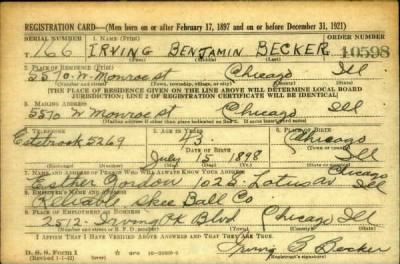 REGISTRATION CARD—(Men born on or after February 17, 1897 and on or before December 31, 1921)
SERIAL NUMBER 1. NAME (Print) ORDER NUMBER
166 IRVING BENJAMIN BECKER 10598
(First) (Middle) (Last)
2. PLACE OF RESIDENCE (Print)
5570 W. Monroe St Chicago Ill
(Number and street) (Town, township, village, or city) (County) (State)
[THIS PLACE OF RESIDENCE GIVEN ON THE LINE ABOVE WILL DETERMINE LOCAL BOARD
JURISDICTION; LINE 2 OF REGISTRATION CERTIFICATE WILL BE IDENTICAL]
3. MAILING ADDRESS
5570 W Monroe St Chicago Ill
[Mailing address if other than place indicated on line 2. If same insert word same]
4. TELEPHONE 5. AGE IN YEARS 6. PLACE OF BIRTH
Estebrook 5269 43 Chicago
DATE OF BIRTH
July 15 1898 Ill
(Mo.) (Day) (Yr.) (State or country)
7. NAME AND ADDRESS OF PERSON WHO WILL ALWAYS KNOW YOUR ADDRESS
Esther Gordon 102 S. Lotus Av Chicago Ill
8. EMPLOYER'S NAME AND ADDRESS
Reliable Skee Ball Co.
9. PLACE OF EMPLOYMENT OR BUSINESS
2512- Irving Pk Blvd Chicago Ill
(Number and street or R. F. D. number) (Town) (County) (State)
I AFFIRM THAT I HAVE VERIFIED ABOVE ANSWERS AND THAT THEY ARE TRUE.
D. S. S. Form 1
(Revised 1-1-42) (over)
Irving B Becker
(Registrant's signature)